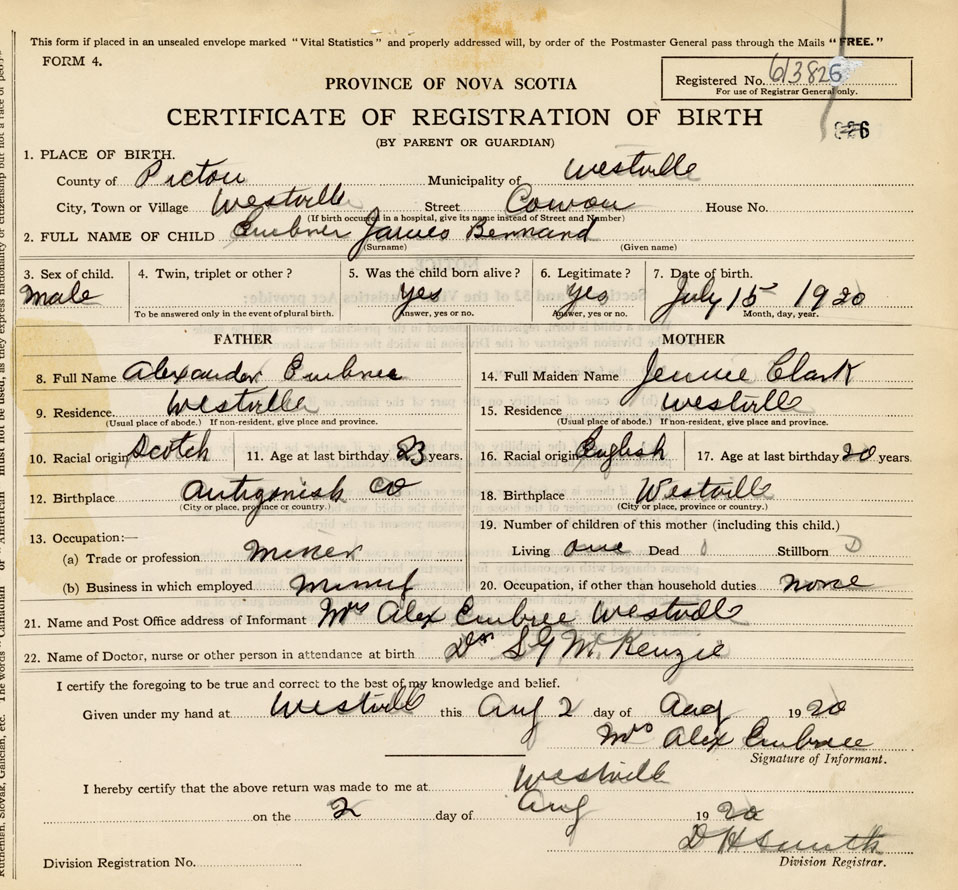 This form if placed in an unsealed envelope marked "Vital Statistics" and properly addressed will, by order of the Postmaster General pass through the Mails "FREE."
FORM 4.
Registered No. 613826
For use of Registrar General only.
PROVINCE OF NOVA SCOTIA
CERTIFICATE OF REGISTRATION OF BIRTH
(BY PARENT OR GUARDIAN)
1. PLACE OF BIRTH.
County of Pictou Municipality of Westville
City, Town or Village Westville Street Cowan House No.
(If birth occured in a hospital, give its name instead of Street and Number)
2. FULL NAME OF CHILD Embree James Bernard
(Surname) (Given name)
3. Sex of child. 4. Twin, triplet or other? 5. Was the child born alive? 6. Legitimate? 7. Date of birth.
Male Yes Yes July 15 1920
To be answered only in the event of plural birth. Answer, yes or no. Answer, yes or no. Month, day, year.
FATHER MOTHER
8. Full Name Alexander Embree 14. Full Maiden Name Jennie Clark
9. Residence. Westville 15. Residence Westville
(Usual place of abode.) If non-resident, give place and province. (Usual place of abode.) If non-resident, give place and province.
10. Racial origin Scotch 11. Age at last birthday 23 years. 16. Racial origin English 17. Age at last birthday 20 years.
12. Birthplace Antigonish Co 18. Birthplace Westville
(City or place, province or country.) (City or place, province or country.)
13. Occupation:— 19. Number of children of this mother (including this child.)
(a) Trade or profession Miner Living one Dead 0 Stillborn 0
(b) Business in which employed Mining 20. Occupation, if other than household duties none
21. Name and Post Office address of Informant Mrs Alex Embree Westville
22. Name of Doctor, nurse or other person in attendance at birth Dr S G McKenzie
I certify the foregoing to be true and correct to the best of my knowledge and belief.
Given under my hand at Westville this Aug 2 day of Aug 1920
Mrs Alex Embree
Signature of Informant.
I hereby certify that the above return was made to me at Westville
on the 2 day of Aug 1920
D H Smith
Division Registrar.
Division Registration No.